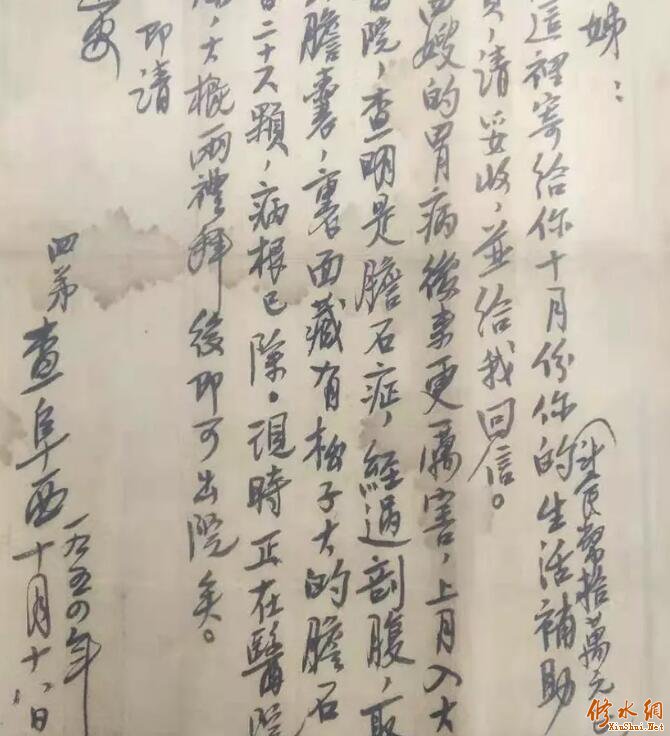 姊：
這裡寄給你十月份你的生活補助
（計人民幣拾萬元）
費，請妥收，並給我回信。
四嫂的胃病後來更厲害，上月入大
醫院，查明是膽石症，經過剖腹，取
膽囊，裏面藏有梅子大的膽石
二十六顆，病根已除。現時正在醫院
，大概兩禮拜後即可出院矣。
即請
安
四弟查阜西十月十八日
一九五四年
修水網
XiuShui.Net